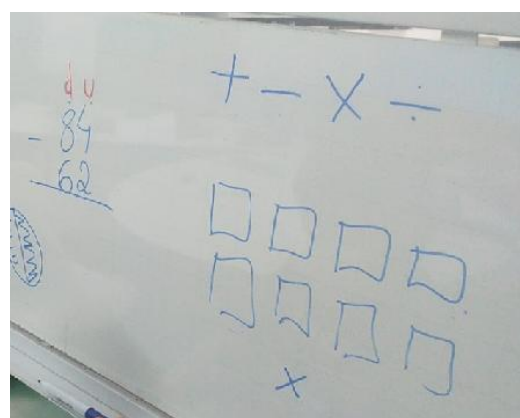 d u
- 84
62
+ - × ÷
×